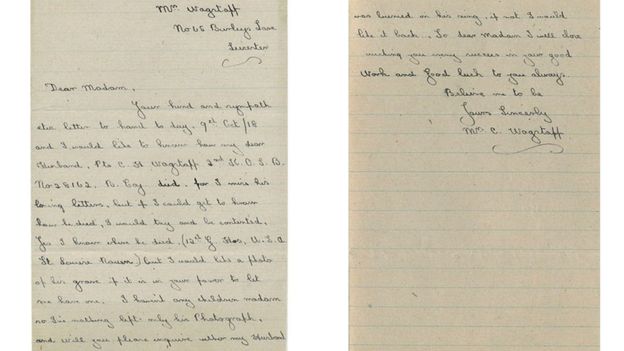 Mrs Wagstaff
No 65 Burleys Lane
Leicester
Dear Madam,
Your kind and sympath
etic letter to hand to day. 9th Oct/18
and I would like to know how my dear
Husband. Pte C. H Wagstaff 2nd K.O.S.B.
No 28162. B. Coy. died. for I miss his
loving letters, but if I could get to know
how he died, I would try and be contented,
Yes I know where he died. (12th G. Hos, U.S.A
St Rouen) but I would like a photo
of his grave if it is in your power to let
me have one. I havn't any children madam
so I've nothing left. only his Photograph,
and will you please inquire wether my Husband
was buried on his ring. if not I would
like it back. So dear Madam I will close
wishing you every success in your good
Work and Good luck to you always.
Believe me to be
Yours Sincerely
Mrs C. Wagstaff